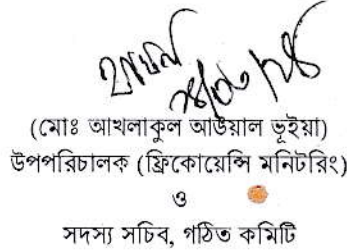 (মোঃ আখলাকুল আউয়াল ভূইয়া)
উপপরিচালক (ফ্রিকোয়েন্সি মনিটরিং)
ও
সদস্য সচিব, গঠিত কমিটি